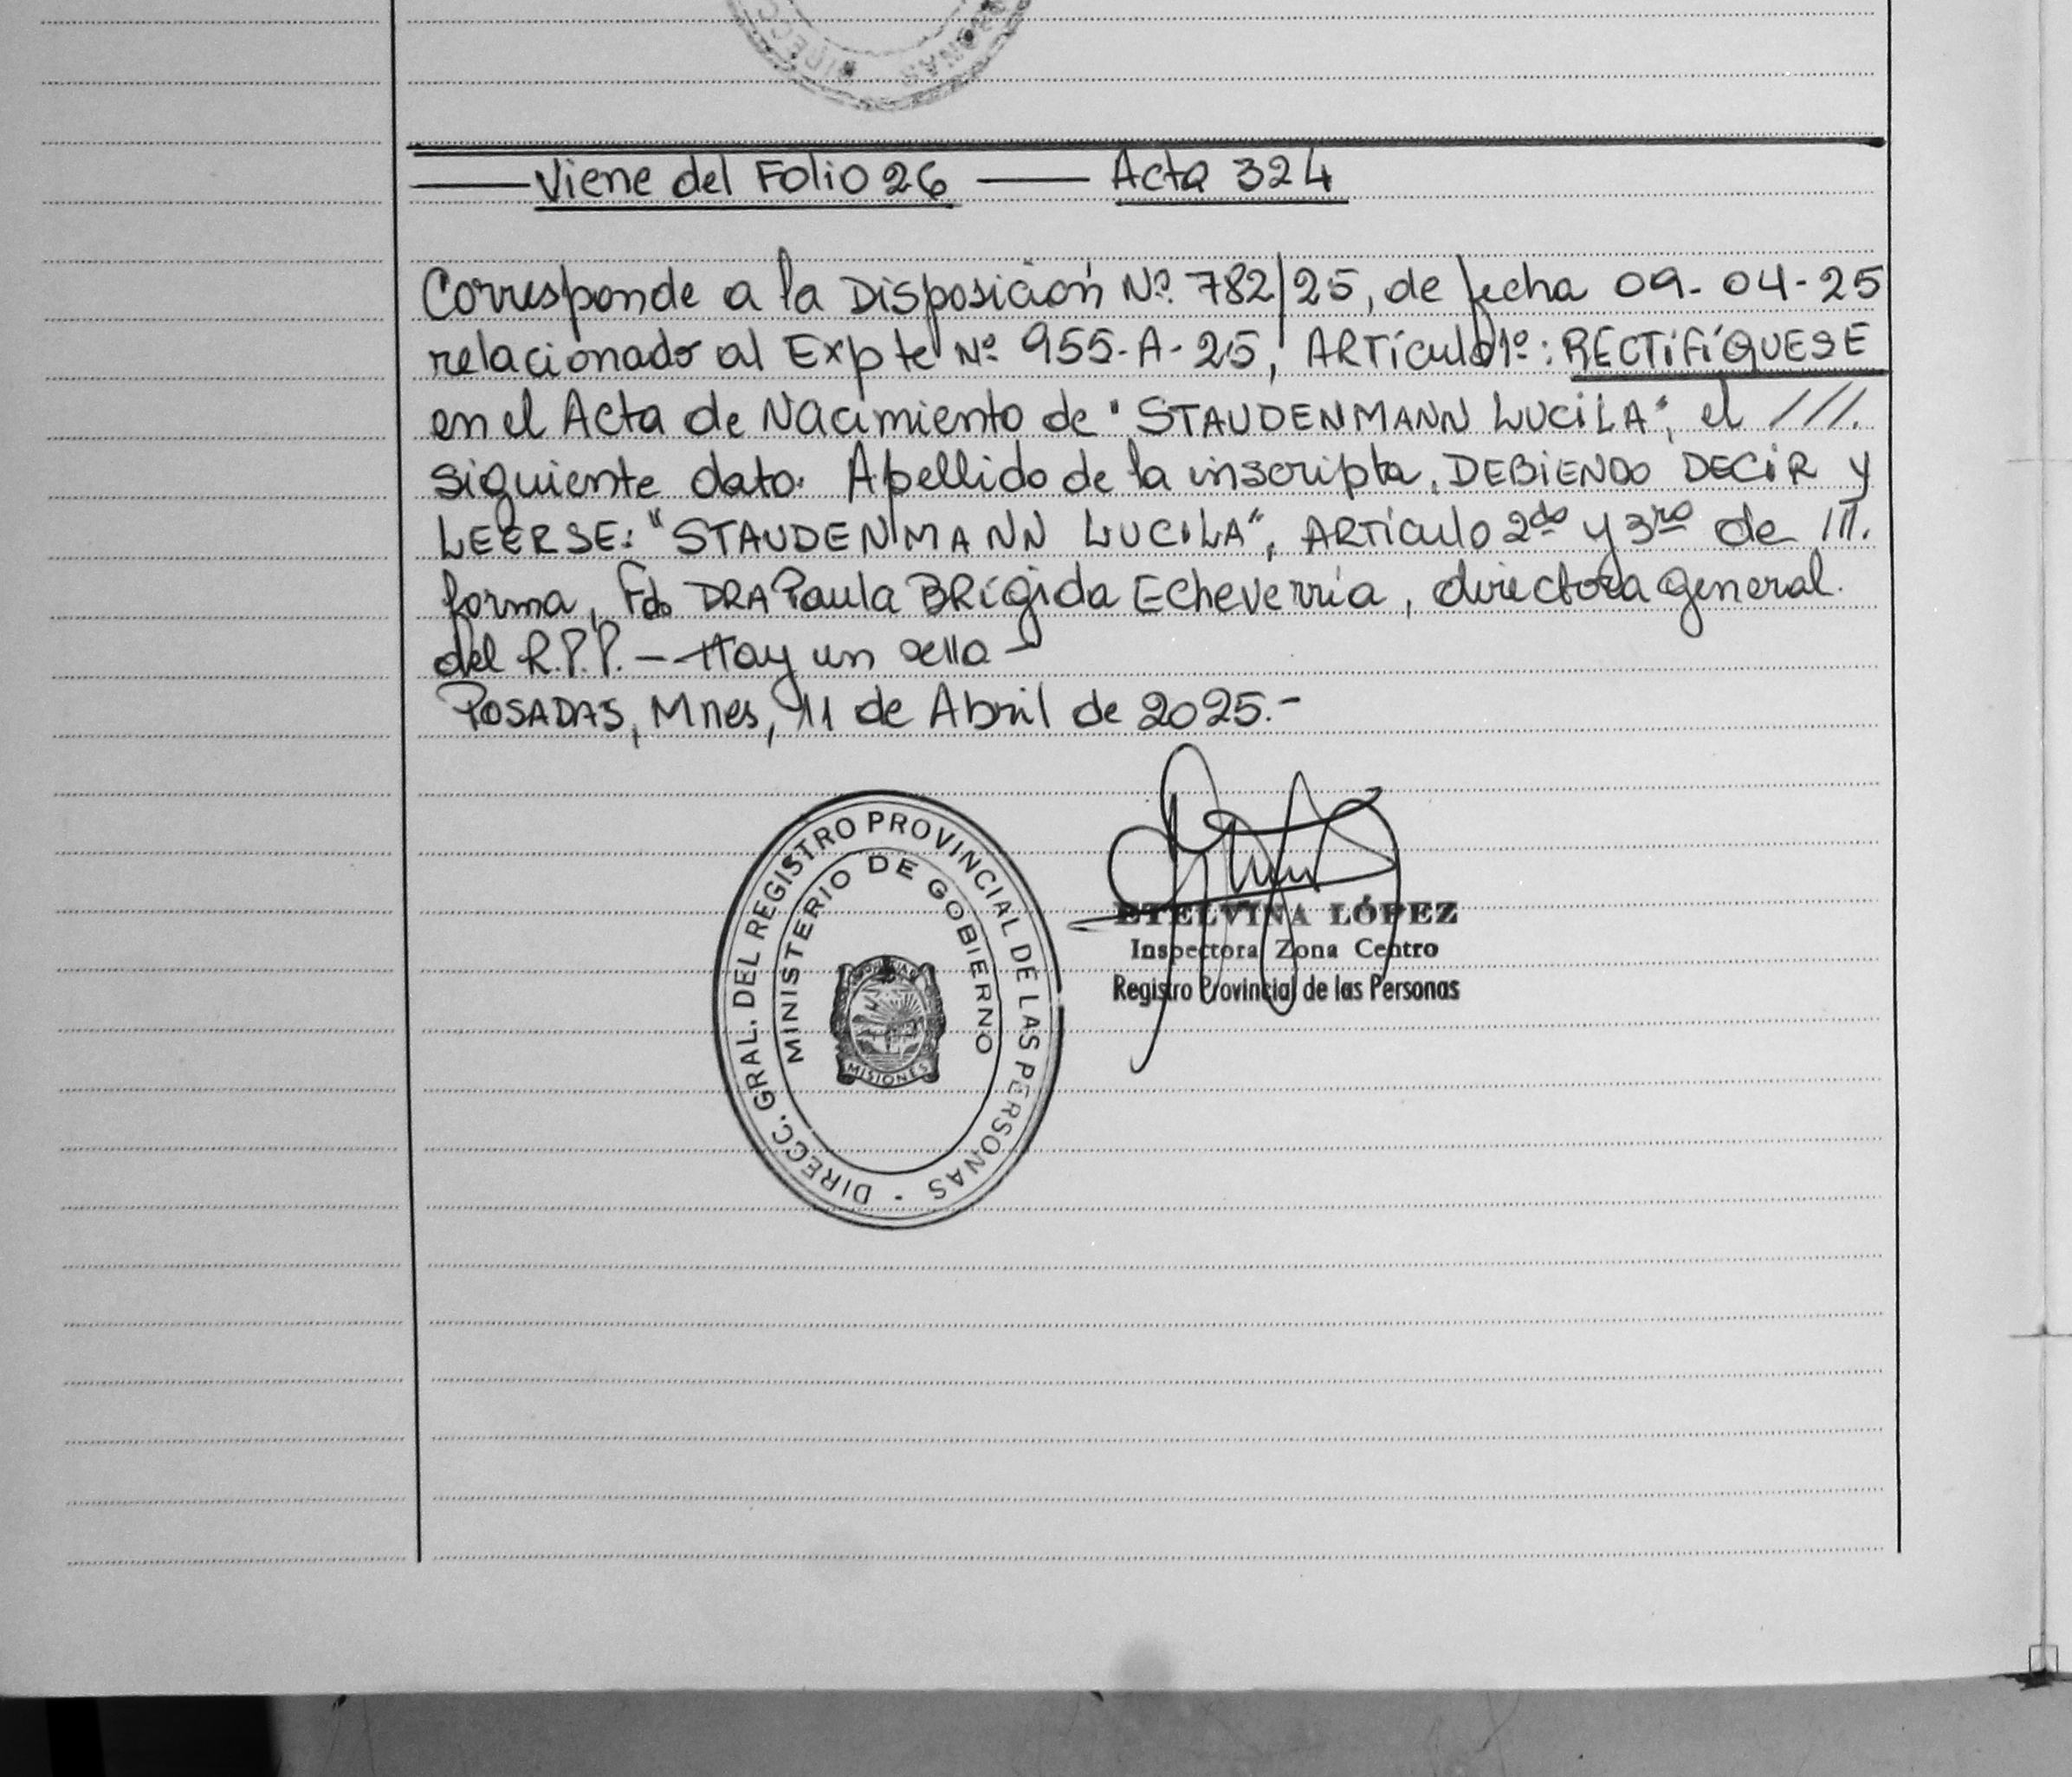 DIRECC
PERSONAS
Viene del Folio 26 — Acta 324
Corresponde a la Disposición Nº 782/25, de fecha 09-04-25
relacionado al Expte Nº 955-A-25, ARTículo 1º: RECTIFÍQUESE
en el Acta de Nacimiento de "STAUDENMANN LUCILA", el ///.
siguiente dato. Apellido de la inscripta, DEBIENDO DECIR y
LEERSE: "STAUDENMANN LUCILA", ARTículo 2do y 3ro de ///.
forma, Fdo DRA Paula BRígida Echeverría, directora general.
del R.P.P. — Hay un sello —
POSADAS, Mnes, 11 de Abril de 2025.-
DIRECC. GRAL. DEL REGISTRO PROVINCIAL DE LAS PERSONAS
MINISTERIO DE GOBIERNO
MISIONES
ETELVINA LÓPEZ
Inspectora Zona Centro
Registro Provincial de las Personas